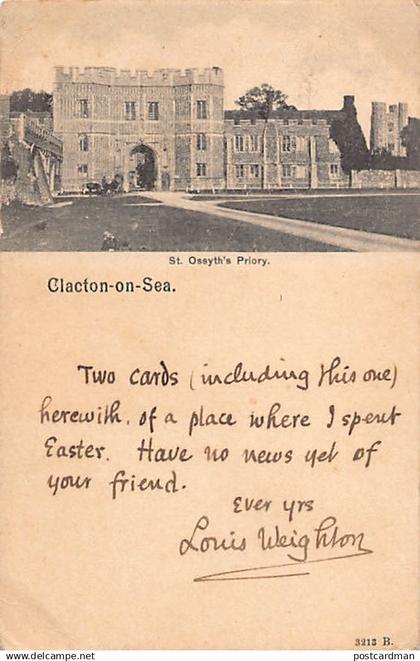 St. Ossyth's Priory.
Clacton-on-Sea.
Two cards (including this one)
herewith, of a place where I spent
Easter. Have no news yet of
your friend.
Ever yrs
Louis Weighton
3213 B.
postcardman